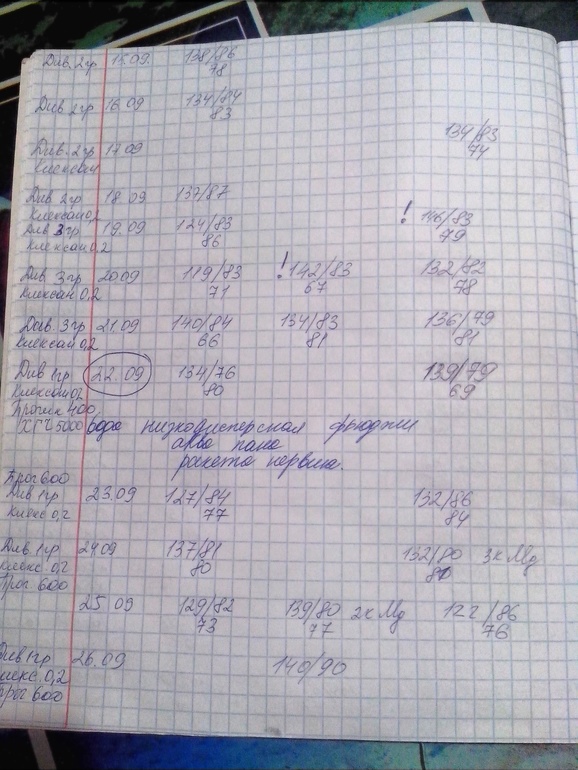 Див. 2гр 15.09. 138/86
78
Див 2гр 16.09 134/84
83
134/83
74
Див. 2гр 17.09
Клексан
Див 2гр 18.09 137/87
Клексан 0,2
! 146/83
79
Див 3гр 19.09 124/83
Клексан 0.2 86
Див 3гр 20.09 119/83 ! 142/83 132/82
Клексан 0,2 71 67 78
Див. 3гр 21.09 140/84 134/83 136/79
Клексан 0,2 66 81 81
Див 1гр 22.09 134/76 139/79
Клексан 0,2 80 69
400
ХГЧ 5000 вода низкодисперсная фьюджи
аква пана
ракета первиш.
Прог 600
Див 1гр 23.09 127/84 132/86
Клекс 0,2 77 84
Див. 1гр 24.09 137/81 132/80 3к Mg
Клекс. 0,2 80
Прог 600
25 09 129/82 139/80 2к Mg 122/86
73 77 76
Див 1гр 26.09 140/90
Клекс. 0,2
Прог 600